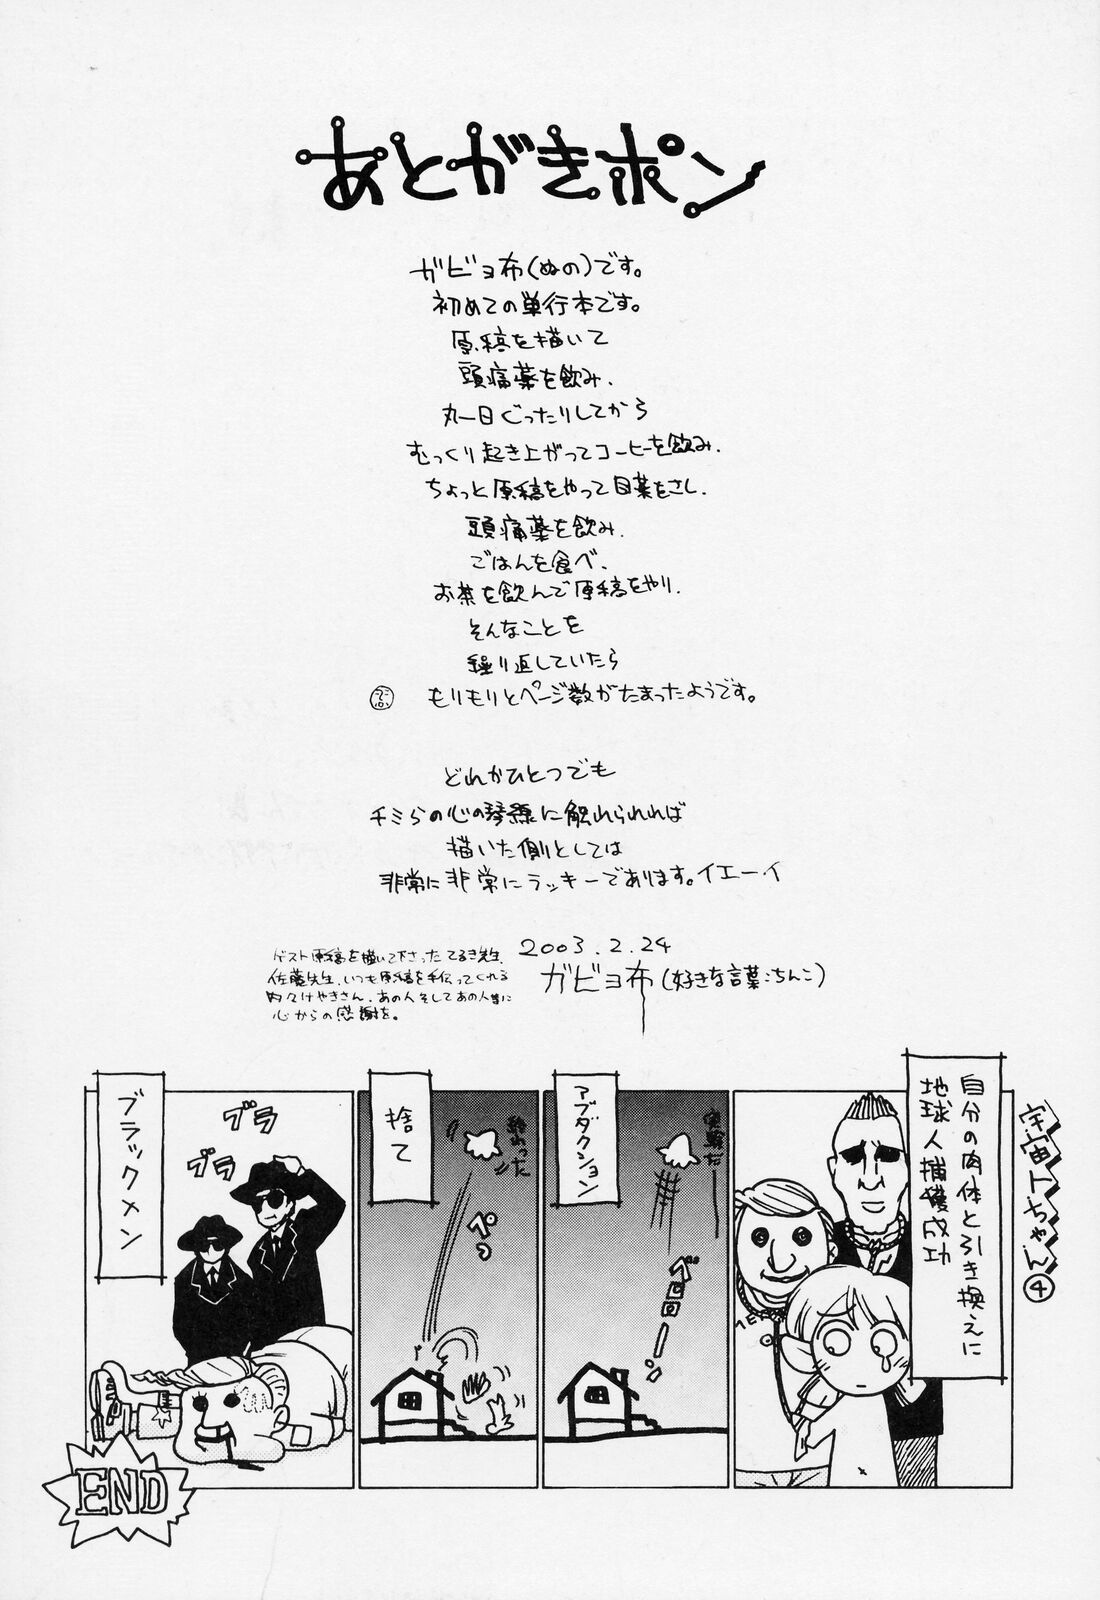 あとがきポン
ガビョ布(ぬの)です。
初めての単行本です。
原稿を描いて
頭痛薬を飲み、
丸一日ぐったりしてから
むっくり起き上がってコーヒーを飲み、
ちょっと原稿をやって目薬をさし、
頭痛薬を飲み、
ごはんを食べ、
お茶を飲んで原稿をやり、
そんなことを
繰り返していたら
もりもりとページ数がたまったようです。
どれかひとつでも
チミらの心の琴線に触れられれば
描いた側としては
非常に非常にラッキーであります。イエーイ
2003.2.24
ガビョ布(好きな言葉:ちんこ)
ゲスト原稿を描いて下さったてるき先生、
佐藤先生、いつも原稿を手伝ってくれる
けやきさん、あの人そしてあの人等に
心からの感謝を。
宇宙人トちゃん④
自分の肉体と引き換えに
地球人捕獲成功
アブダクション
実験だ
ベローン
捨て
終わった
ペッ
ブラックメン
ブラ
ブラ
END